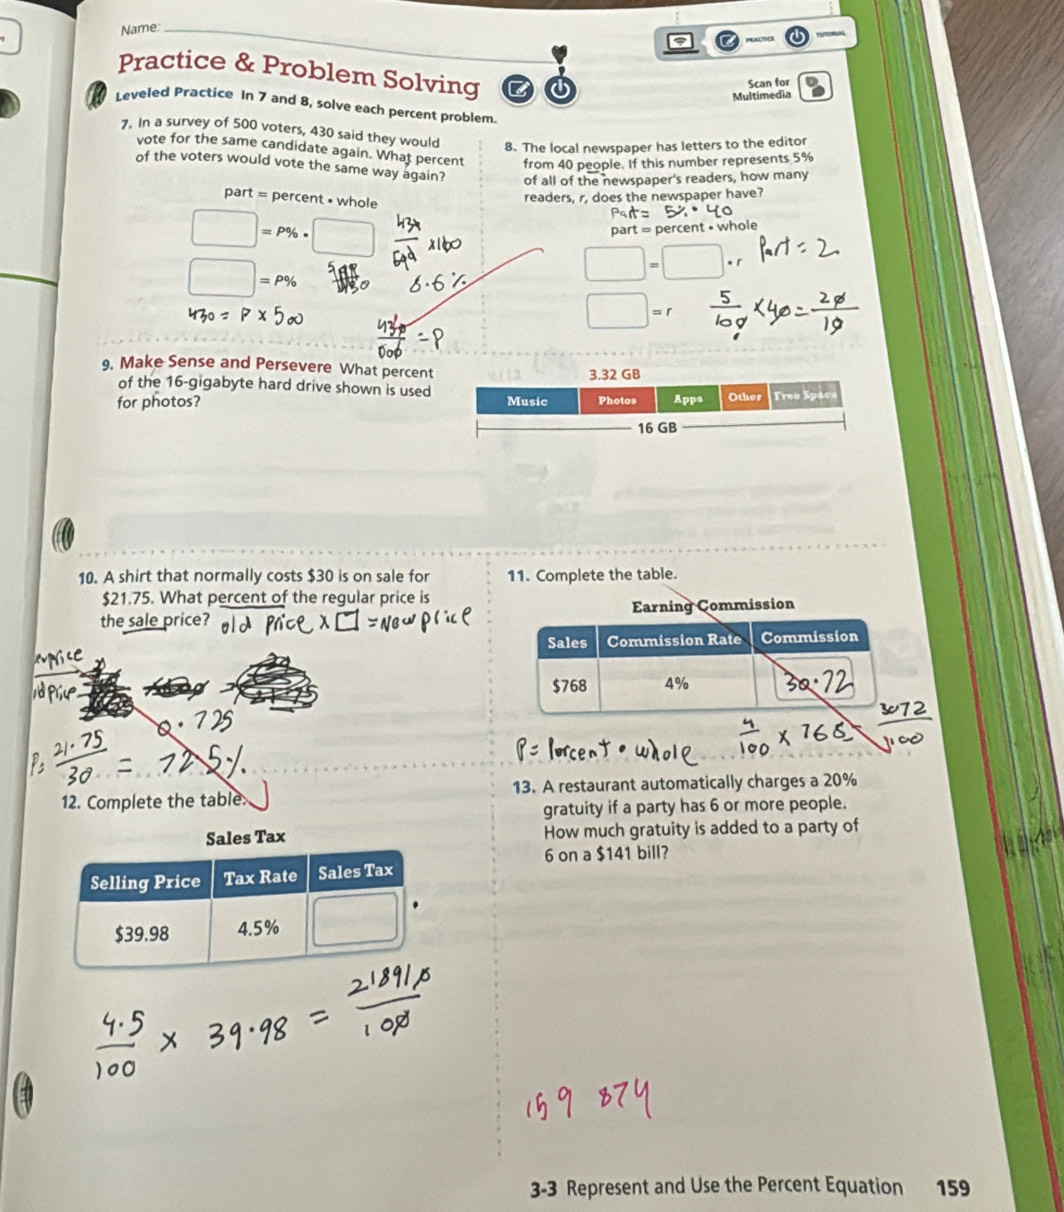 Name:
PRACTICE
TUTORIAL
Practice & Problem Solving
Scan for
Multimedia
Leveled Practice In 7 and 8, solve each percent problem.
7. In a survey of 500 voters, 430 said they would
vote for the same candidate again. What percent
of the voters would vote the same way again?
part = percent • whole
= P% •
= P%
430 = P × 500
×100
= P
8. The local newspaper has letters to the editor
from 40 people. If this number represents 5%
of all of the newspaper's readers, how many
readers, r, does the newspaper have?
Part = 5% • 40
part = percent • whole
= • r
Part = 2
= r
5/100 × 40 = 20/10
9. Make Sense and Persevere What percent
of the 16-gigabyte hard drive shown is used
for photos?
3.32 GB
Music Photos Apps Other Free Space
16 GB
10. A shirt that normally costs $30 is on sale for
$21.75. What percent of the regular price is
the sale price?
old price × □ = New price
0.725
P = 21.75/30 = 72.5%
11. Complete the table.
Earning Commission
Sales Commission Rate Commission
$768 4% 30.72
P = Percent • whole
4/100 × 768 = 3072/100
12. Complete the table.
Sales Tax
Selling Price Tax Rate Sales Tax
$39.98 4.5%
4.5/100 × 39.98 =
13. A restaurant automatically charges a 20%
gratuity if a party has 6 or more people.
How much gratuity is added to a party of
6 on a $141 bill?
159 874
3-3 Represent and Use the Percent Equation 159